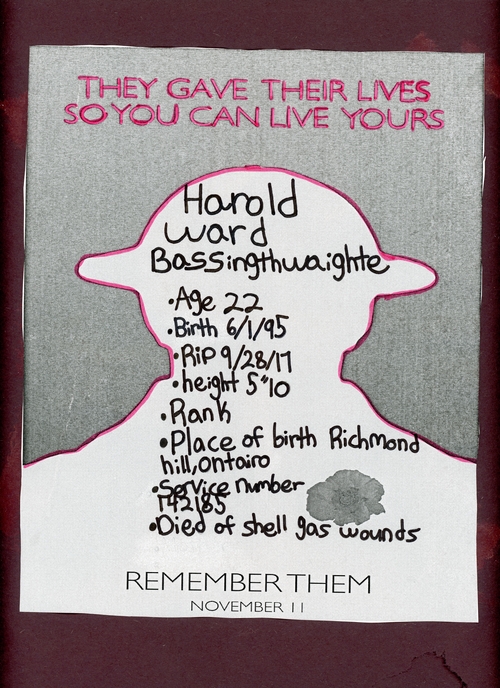 THEY GAVE THEIR LIVES
SO YOU CAN LIVE YOURS
Harold
ward
Bassingthwaighte
•Age 22
•Birth 6/1/95
•RiP 9/28/17
•height 5"10
•Rank
•Place of birth Richmond
hill, ontairo
•Service number
742185
•Died of shell gas wounds
REMEMBER THEM
NOVEMBER 11